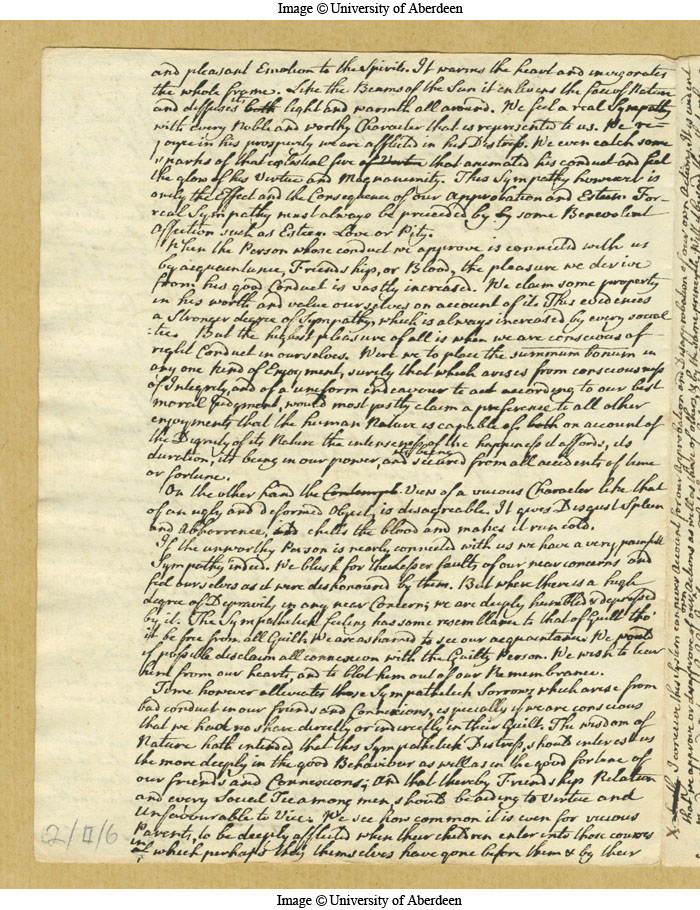 Image © University of Aberdeen
and pleasant Emotion to the Spirits. It warms the heart and invigorates
the whole frame. Like the Beams of the Sun it enlivens the face of Nature
and diffuses its both light and warmth all around. We feel a real Sympathy
with every Noble and worthy Character that is represented to us. We re-
joyce in his prosperity we are afflicted in his Distress. We even catch some
sparks of that celestial fire of Virtue that animated his conduct and feel
the glow of his Virtue and Magnanimity. This Sympathy however is
only the Effect and the Consequence of our Approbation and Esteem For
real Sympathy must always be preceeded by by some Benevolent
Affection such as Esteem Love or Pity.
When the Person whose conduct we approve is connected with us
by acquaintance, Friendship, or Blood, the pleasure we derive
from his good Conduct is vastly increased. We claim some property
in his worth and value ourselves on account of it. This evidences
a Stronger degree of Sympathy, which is always increased by every social
tie. But the highest pleasure of all is when we are conscious of
right Conduct in ourselves. Were we to place the summum bonum in
any one kind of Enjoyment, surely that which arises from consciousness
of Integrity, and of a uniform endeavour to act according to our best
moral Judgment, would most justly claim a preference to all other
enjoyments that the human Nature is capable of both on account of
the Dignity of its Nature the intenseness of the happiness it affords, its
duration, its being in our power, and its being secured from all accidents of time
or fortune.
On the other hand the Contempt View of a vicious Character like that
of an ugly and deformed Object, is disagreable. It gives Disgust Spleen
and Abhorrence, and chills the blood and makes it run cold.
If the unworthy Person is nearly connected with us we have a very painfull
Sympathy indeed. We blush for the lesser faults of our near concerns and
feel ourselves as it were dishonoured by them. But where there is a high
degree of Depravity in any near Concern; we are deeply humbled & depressed
by it. The Sympathetick feeling has some resemblance to that of Guilt tho'
it be free from all Guilt. We are ashamed to see our acquaintance We would
if possible disclaim all connexion with the Guilty Person. We wish to tear
him from our heart, and to blot him out of our Remembrance.
Time however alleviates those Sympathetick Sorrows which arise from
bad conduct in our friends and Connexions, especially if we are conscious
that we had no share directly or indirectly in their Guilt. The wisdom of
Nature hath intended that this Sympathetick Distress, should interest us
the more deeply in the good Behaviour as well as in the good fortune of
our friends and Connexions; And that thereby Friendship Relation
and every Social Tie among men, should be aiding to Virtue and
Unfavourable to Vice. We see how common it is even for vicious
Parents, to be deeply afflicted when their children enter into those courses
in of which perhaps they themselves have gone before them & by their
2/II/6
Image © University of Aberdeen